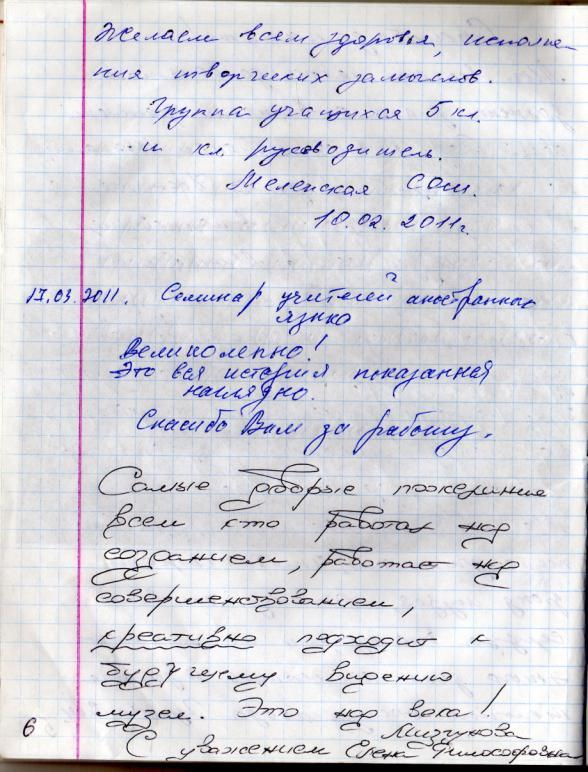 Желаем всем здоровья, исполне-
ния творческих замыслов.
Группа учащихся 5 кл.
и кл. руководитель.
СОШ.
10.02.2011г.
17.03.2011. Семинар учителей иностранного
языка
Великолепно!
Это вся история показанная
наглядно.
Спасибо Вам за работу.
Самые добрые пожелания
всем кто работал над
созданием, работает над
совершенствованием,
креативно подходит к
будущему видению
музея. Это на века!
С уважением Елена Философовна
6